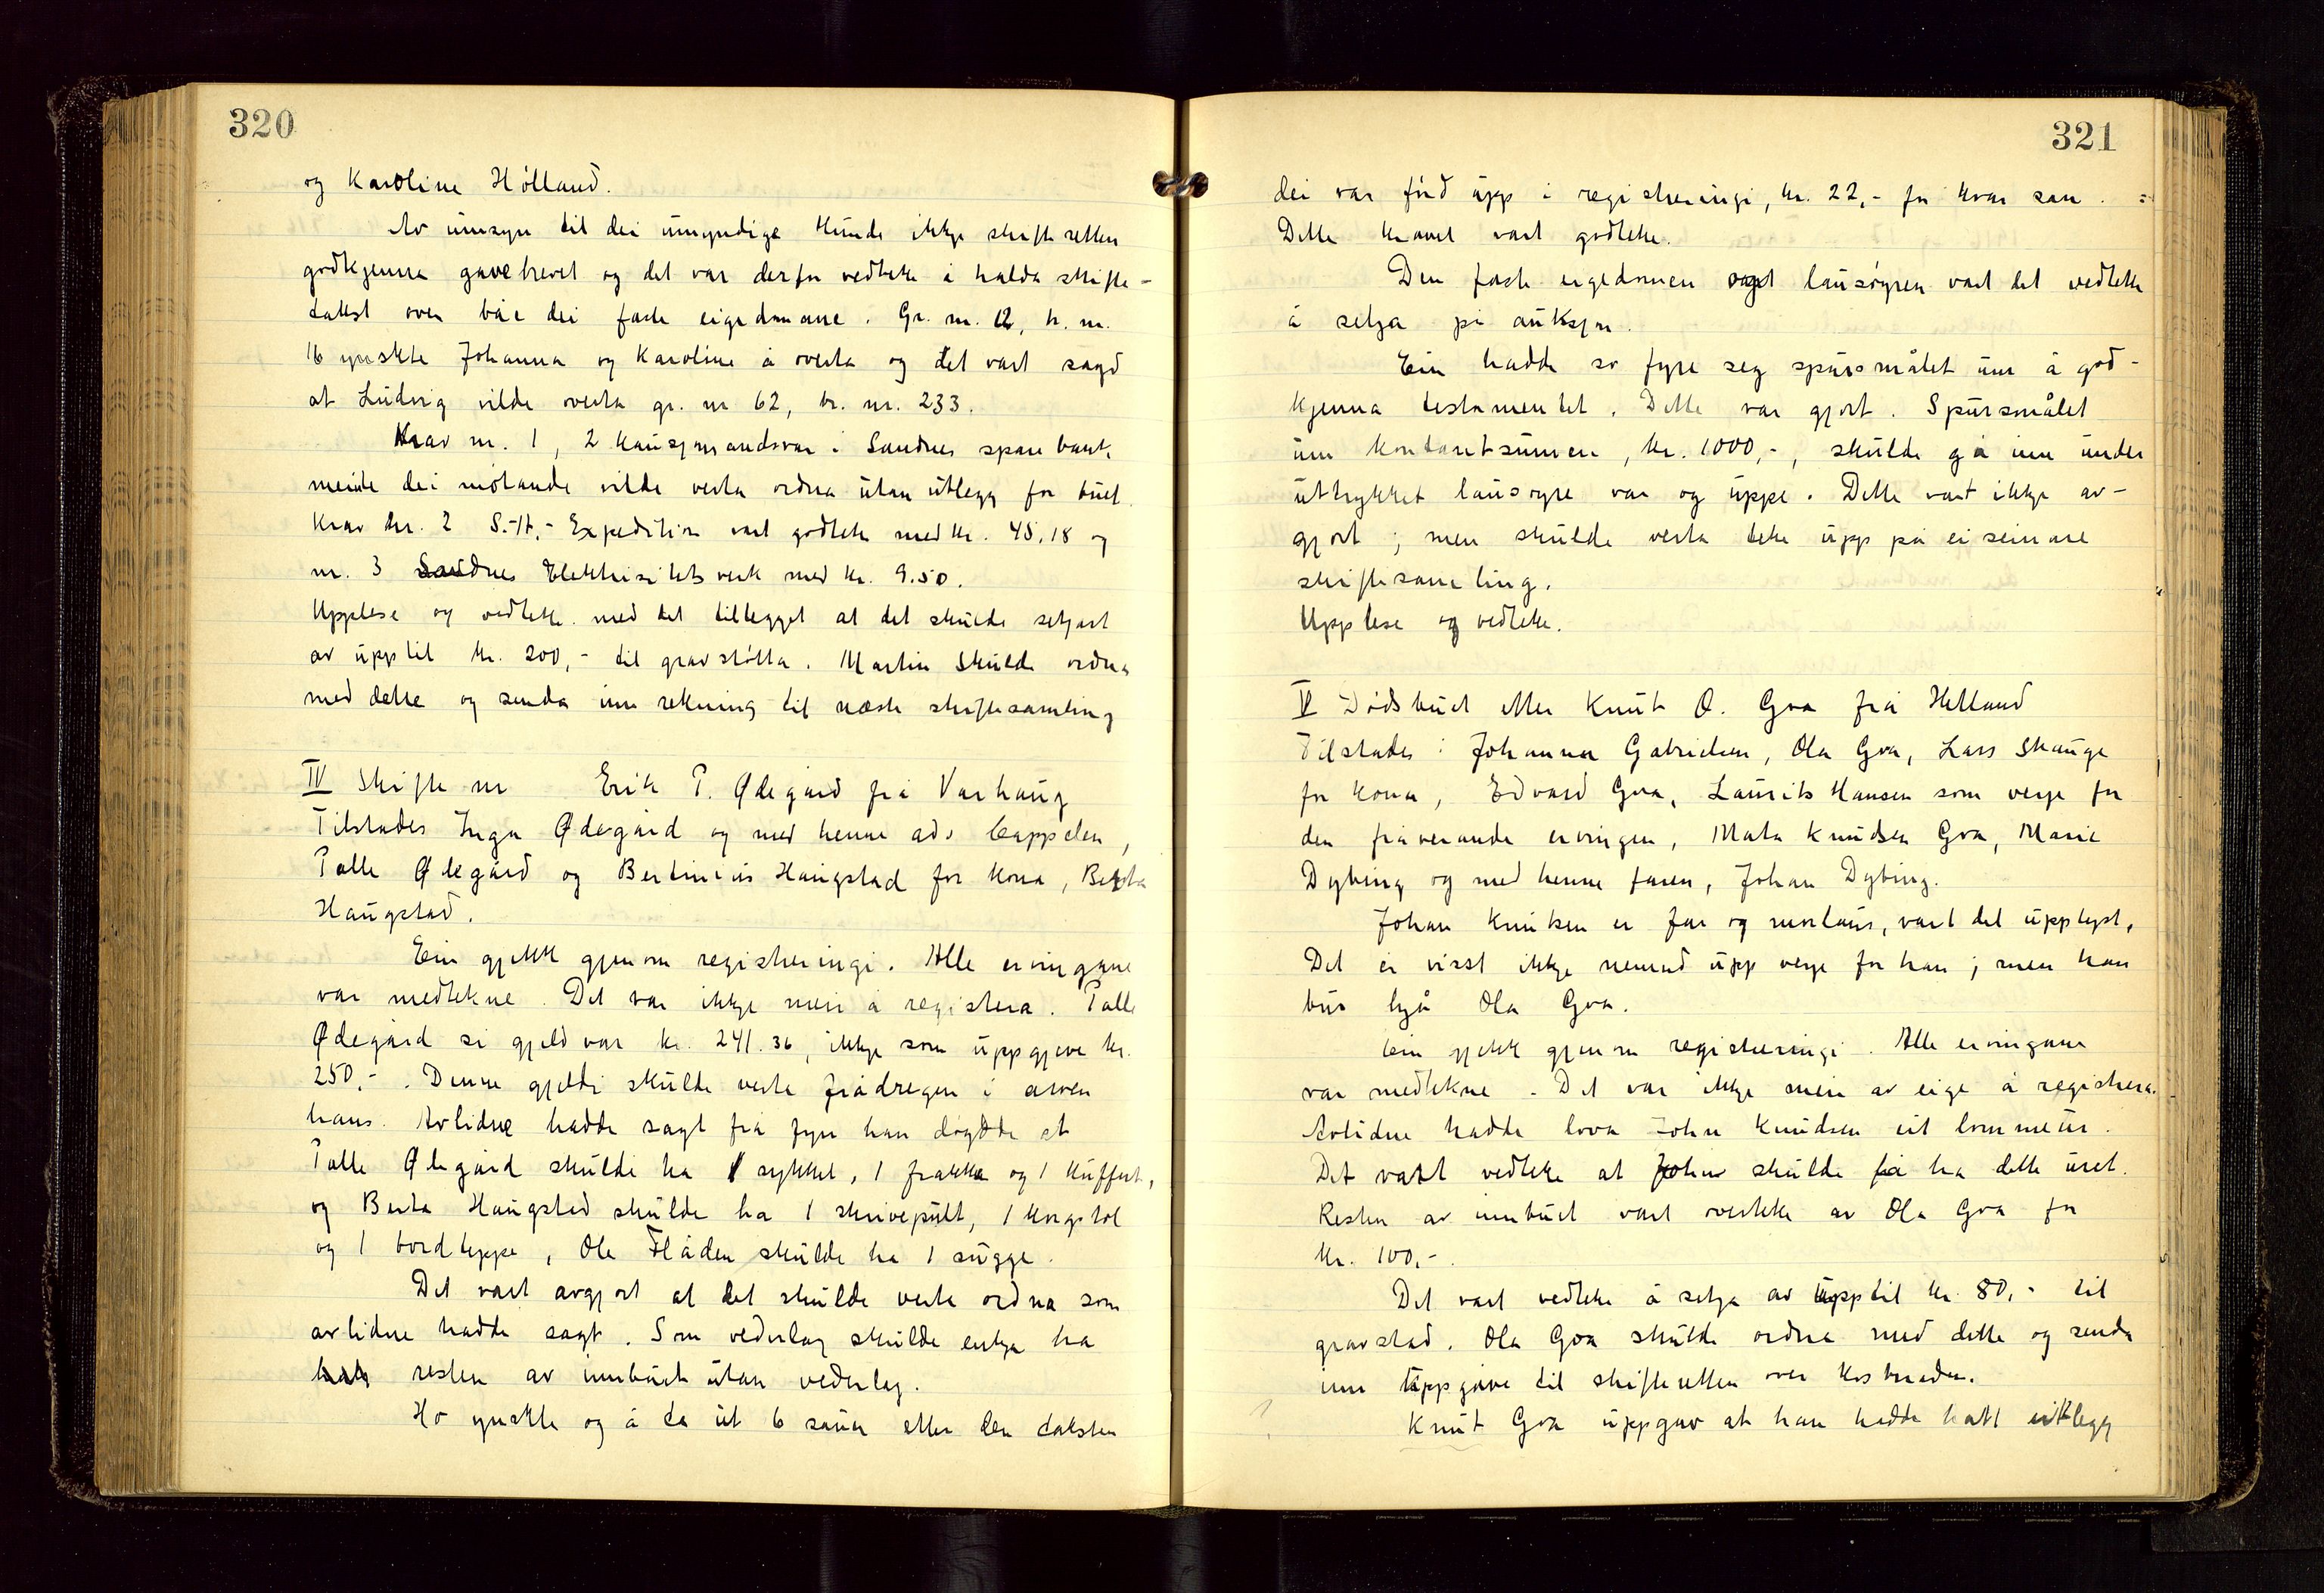 320
og Karoline Hólland.
Av umsyn til dei umyndige kunde ikkje skifteretten
godkjenna gavebrevet og det var derfor vedteke å halda skifte-
takst over båe dei faste eigedomane. Gr. nr. 12, br. nr.
16 ynskte Johanna og Karoline å overta og det vart sagd
at Ludvig vilde overta gr. nr 62, br. nr. 233.
Krav nr. 1, 2 kausjonsansvar i Sandnes sparebank,
meinte dei møtande vilde verta ordna utan utlegg for buet.
Krav nr. 2 S.-A.-Expedition vart godteke med kr. 45,18 og
nr. 3 Sandnes Elektrisitetsverk med kr. 9.50.
Upplese og vedteke med det tillegget at det skulde setjast
av upptil kr. 200,- til gravstøtta. Martin skulde ordna
med dette og senda inn rekning til næste skiftesamling
IV Skifte nr Erik T. Ødegård frå Varhaug
Tilstades Inga Ødegård og med henne adv Cappelen,
Talle Ødegård og Bertinius Haugstad for kona, Berta
Haugstad.
Ein gjekk gjenom registreringi. Alle ervingane
var medtekne. Det var ikkje meir å registera. Talle
Ødegård si gjeld var kr. 241.36, ikkje som uppgjeve kr.
250,-. Denne gjeldi skulde verte frådregen i arven
hans. Avlidne hadde sagt frå fyrr han døydde at
Talle Ødegård skulde ha 1 sykkel, 1 frakke og 1 kuffert,
og Berta Haugstad skulde ha 1 skrivepult, 1 korgstol
og 1 bordteppe, Ole Flåden skulde ha 1 sugge.
Det vart avgjort at det skulde verte ordna som
avlidne hadde sagt. Som vederlag skulde enkja ha
resten av innbuet utan vederlag.
Ho ynskte og å ta ut 6 sauer etter den taksten
321
dei var ført upp i registreringi, kr. 22,- for kvar sau.
Dette kravet vart godteke.
Den faste eigedomen og lausøyren vart det vedteke
å selja på auksjon.
Ein hadde so fyre seg spursmålet um å god-
kjenna testamentet. Dette var gjort. Spursmålet
um kontantsumen, kr. 1000,-, skulde gå inn under
uttrykket lausøyre var og uppe. Dette vart ikkje av-
gjort; men skulde verta teke upp på ei seinare
skiftesamling.
Upplese og vedteke.
V Dødsbuet etter Knut O. Goa frå Helland
Tilstades: Johanna Gabrielsen, Ola Goa, Lars Skauge
for kona, Edvard Goa, Laurits Hansen som verje for
den fråverande ervingen, Marta Knudsen Goa, Marie
Dybing og med henne faren, Johan Dybing.
Johan Knutsen er far og morlaus, vart det upplyst.
Det er visst ikkje nemnd upp verje for han; men han
bur hjå Ola Goa.
Ein gjekk gjenom registreringi. Alle ervingane
var medtekne. Det var ikkje meir av eige å registrera.
Avlidne hadde lova John Knudsen eit lommeur.
Det vart vedteke at John skulde få ha dette uret.
Resten av innbuet vart overteke av Ola Goa for
kr. 100,-.
Det vart vedteke å setja av upptil kr. 80,- til
gravstad. Ola Goa skulde ordna med dette og senda
inn uppgåve til skifteretten over kostnaden.
Knut Goa uppgav at han hadde hatt utlegg